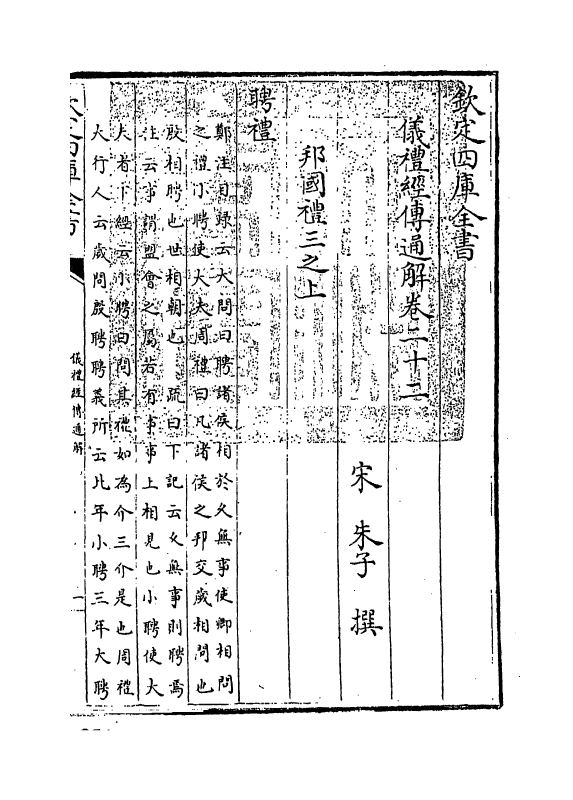 欽定四庫全書
儀禮經傳通解卷二十二
宋 朱子 撰
邦國禮三之上
聘禮
鄭注目録云大問曰聘諸侯相於乆無事使卿相問
之禮小聘使大夫周禮曰凡諸侯之邦交歲相問也
殷相聘也世相朝也 疏曰下記云乆無事則聘焉
注云事謂盟會之屬若有事事上相見也小聘使大
夫者下經云小聘曰問其禮如為介三介是也周禮
大行人云歲問殷聘聘義所云比年小聘三年大聘
儀禮經傳通解
一